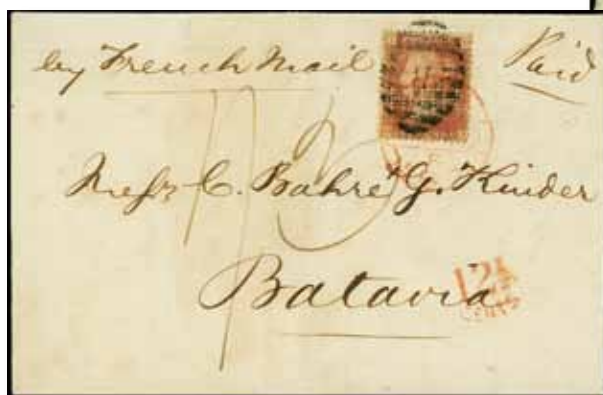 by French Mail
Paid
Messrs C. Bahre G. Kinder
Batavia
12½